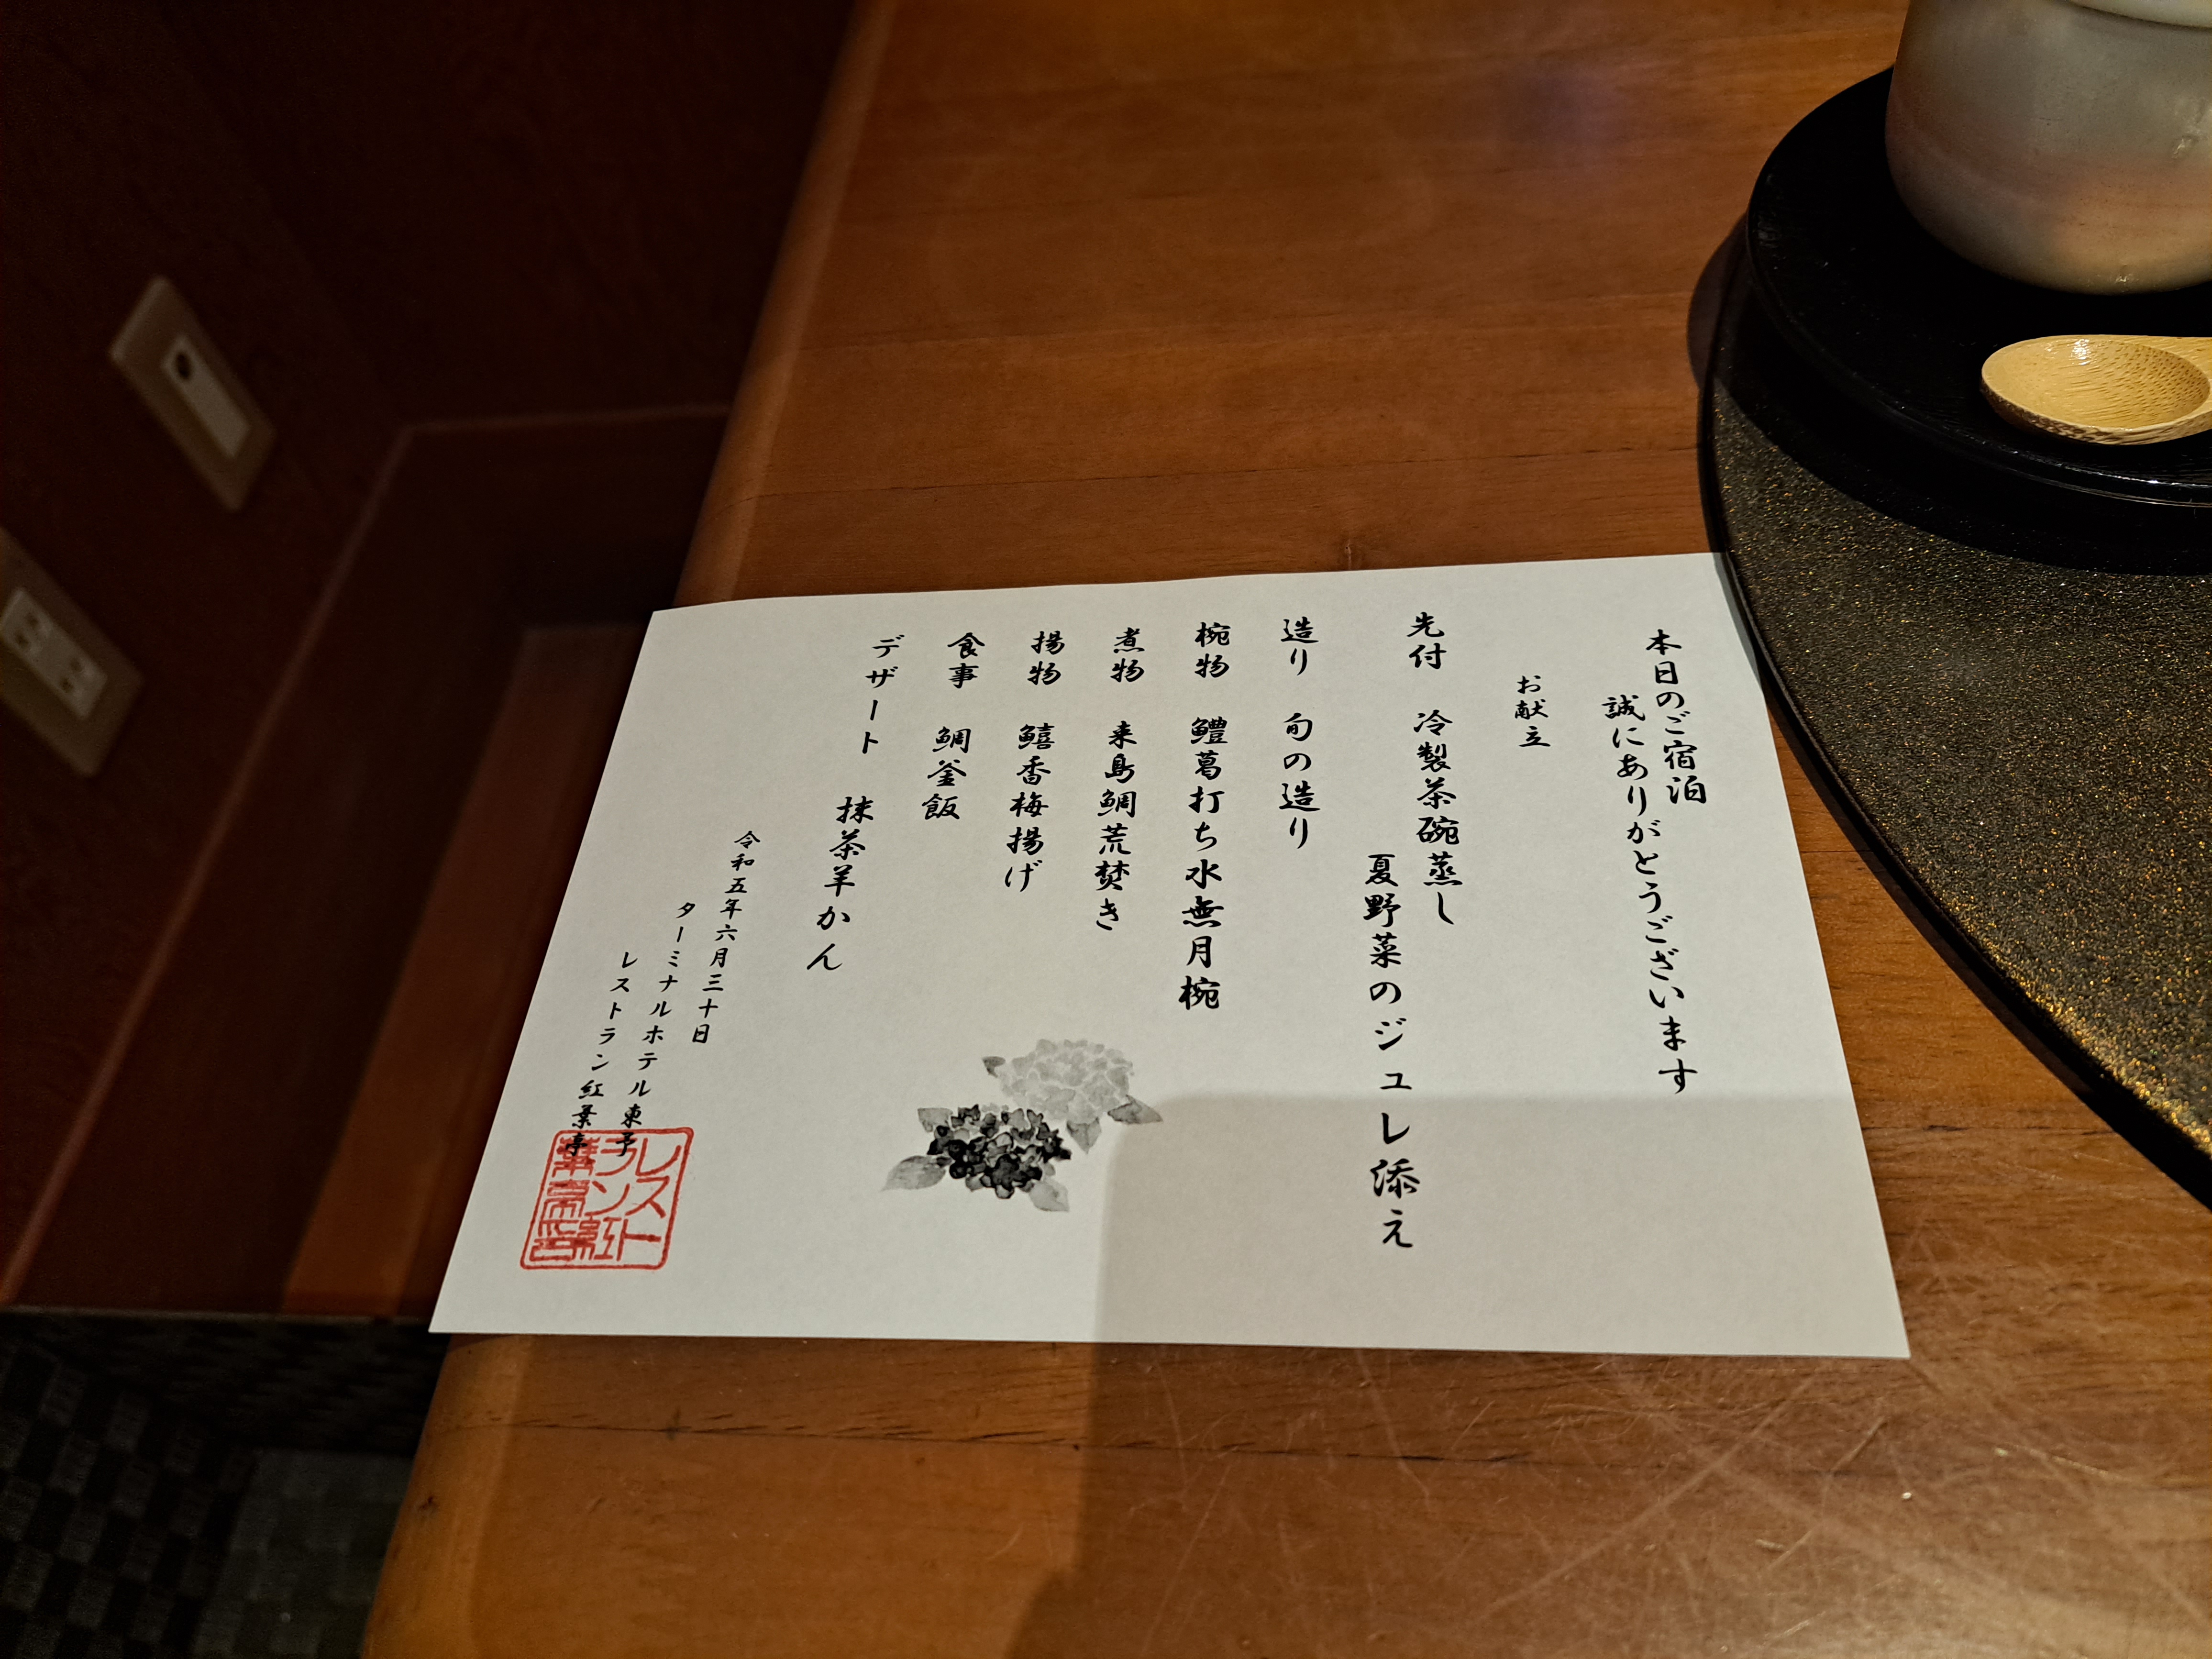 本日のご宿泊
誠にありがとうございます
お献立
先付 冷製茶碗蒸し
夏野菜のジュレ添え
造り 旬の造り
椀物 鱧葛打ち水無月椀
煮物 来島鯛荒焚き
揚物 鱚香梅揚げ
食事 鯛釜飯
デザート 抹茶羊かん
令和五年六月三十日
ターミナルホテル東予
レストラン紅葉亭
レスト
ラン紅
葉亭印